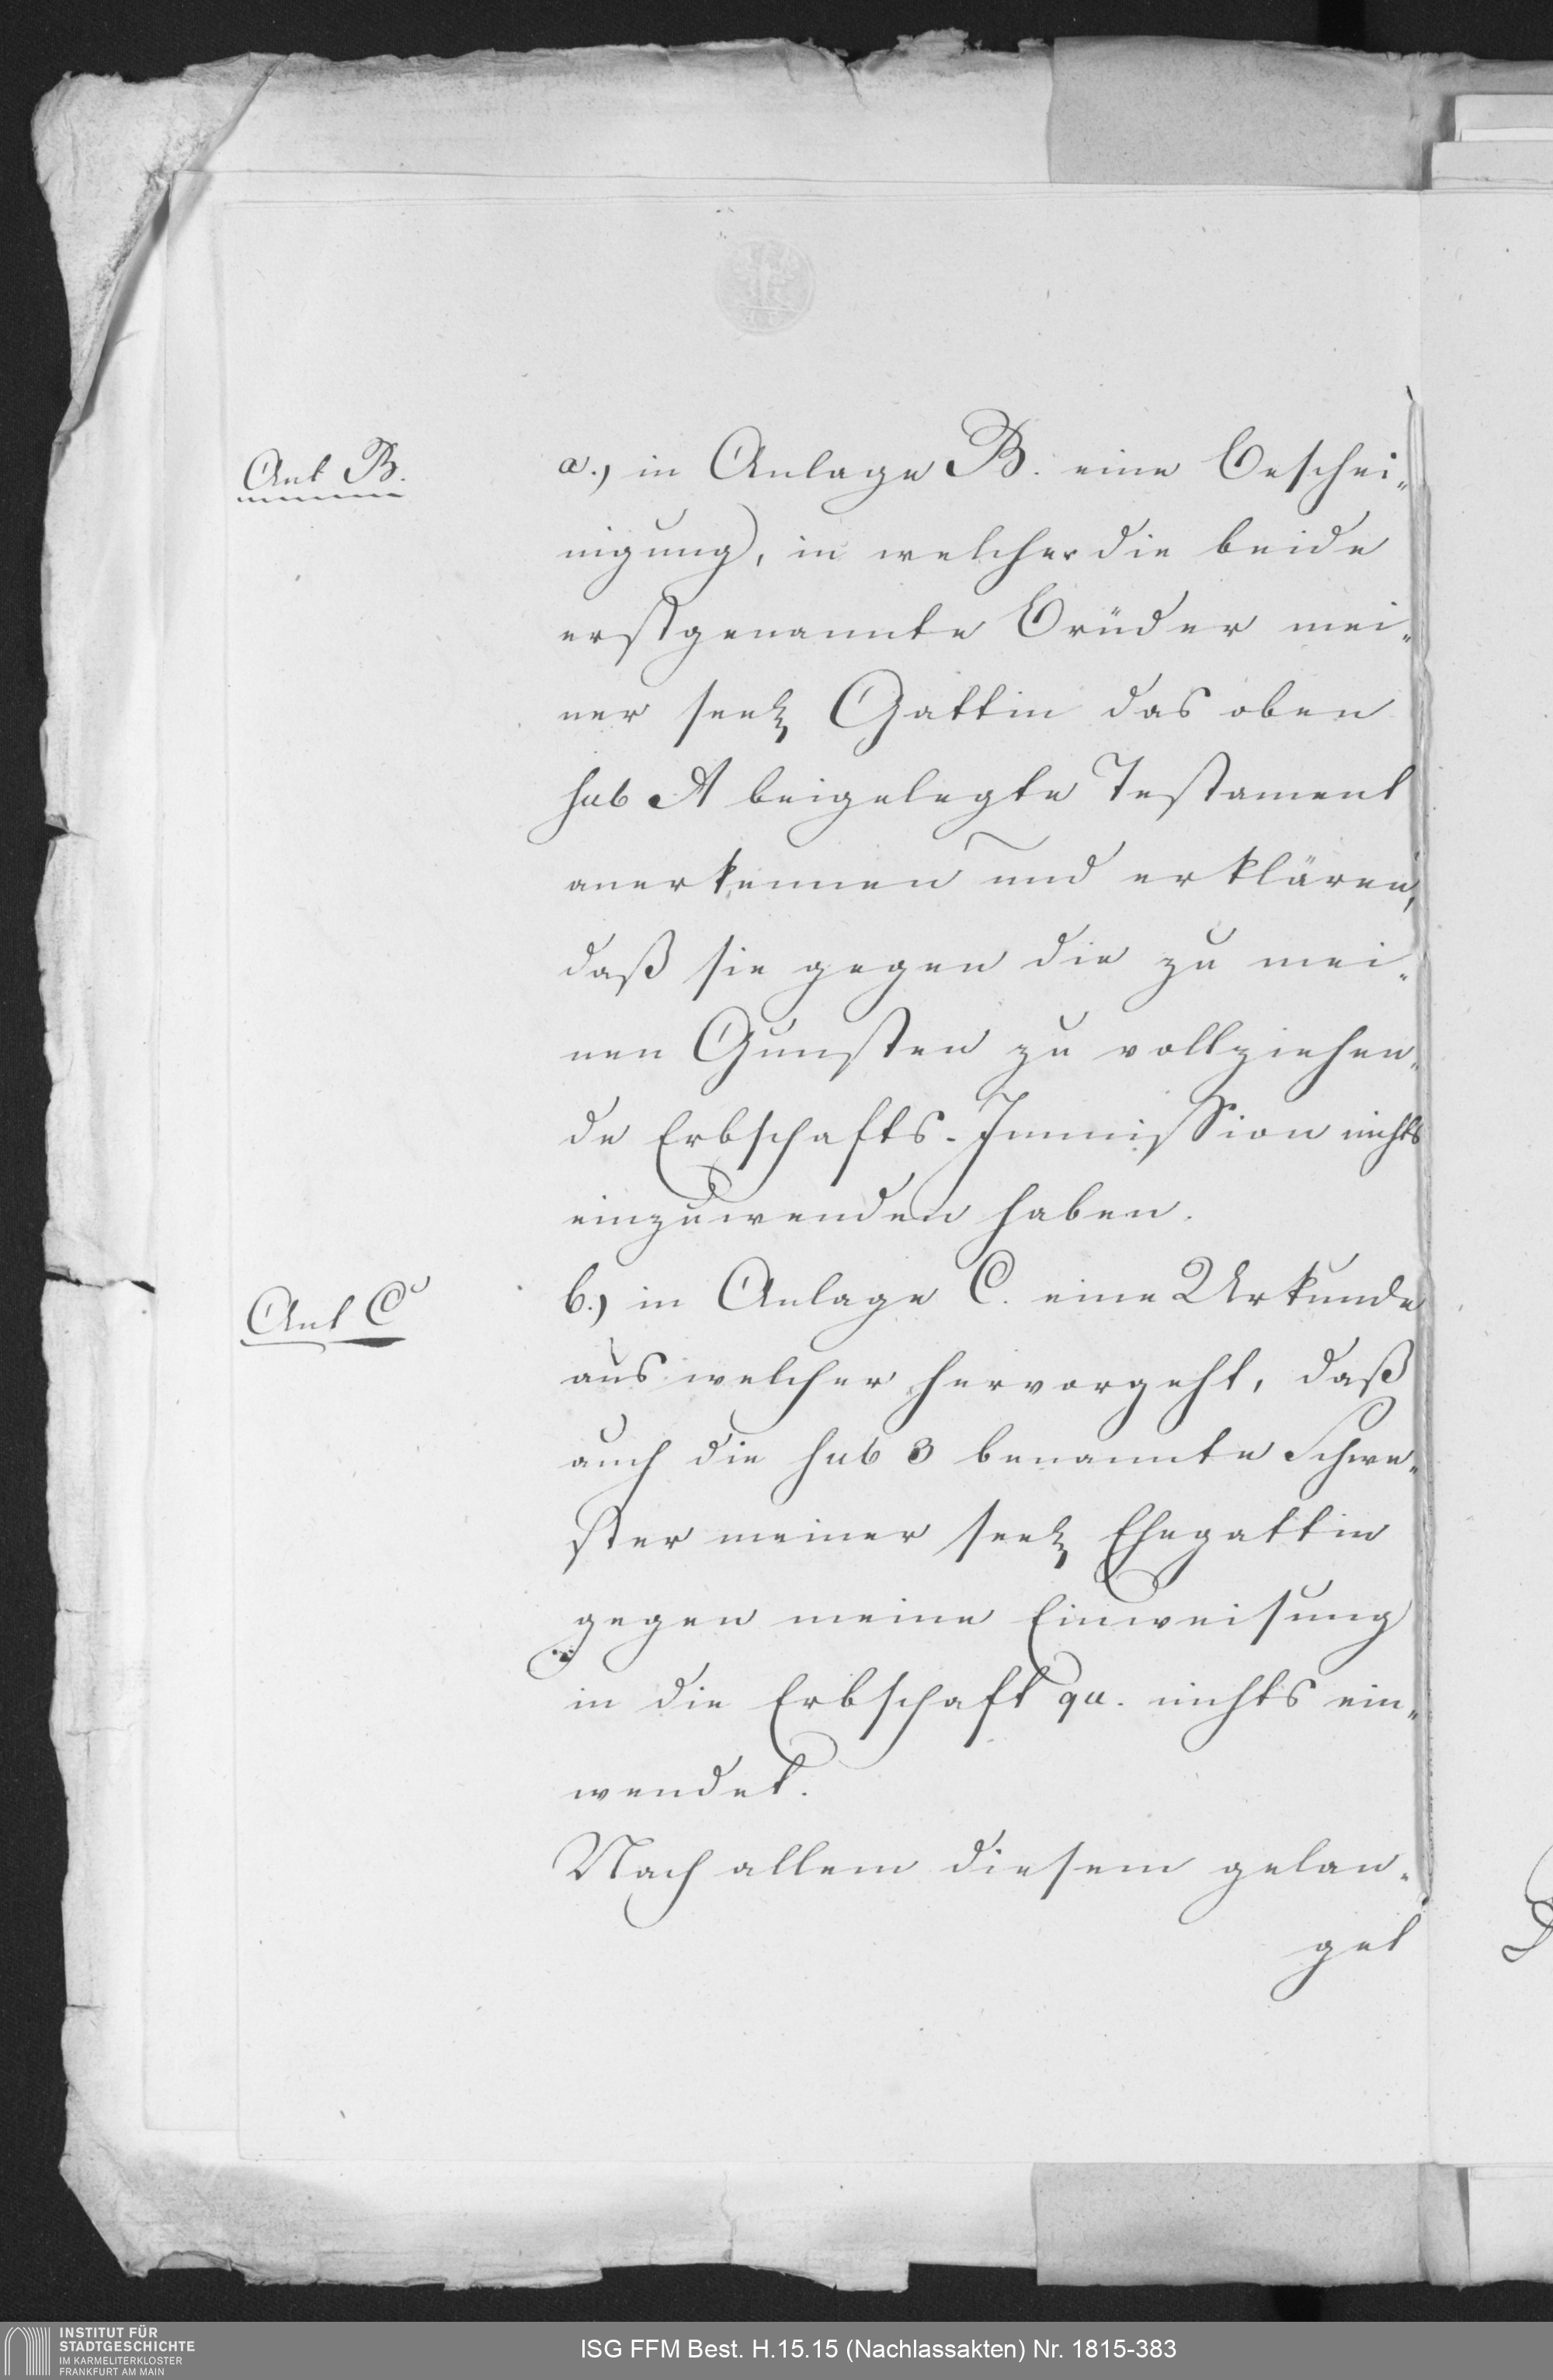 Anl B.
a.) in Anlage B. eine Beschei-
nigung, in welcher die beide
erstgenannte Brüder mei-
ner seel. Gattin das oben
sub A beigelegte Testament
anerkennen und erklären,
daß sie gegen die zu mei-
nen Gunsten zu vollziehen-
de Erbschafts-Immission nichts
einzuwenden haben.
Anl C
b.) in Anlage C. eine Urkunde
aus welcher hervorgeht, daß
auch die sub 3 benannte Schwe-
ster meiner seel. Ehegattin
gegen meine Einweisung
in die Erbschaft qu. nichts ein-
wendet.
Nach allem diesem gelan-
get
INSTITUT FÜR
STADTGESCHICHTE
IM KARMELITERKLOSTER
FRANKFURT AM MAIN
ISG FFM Best. H.15.15 (Nachlassakten) Nr. 1815-383